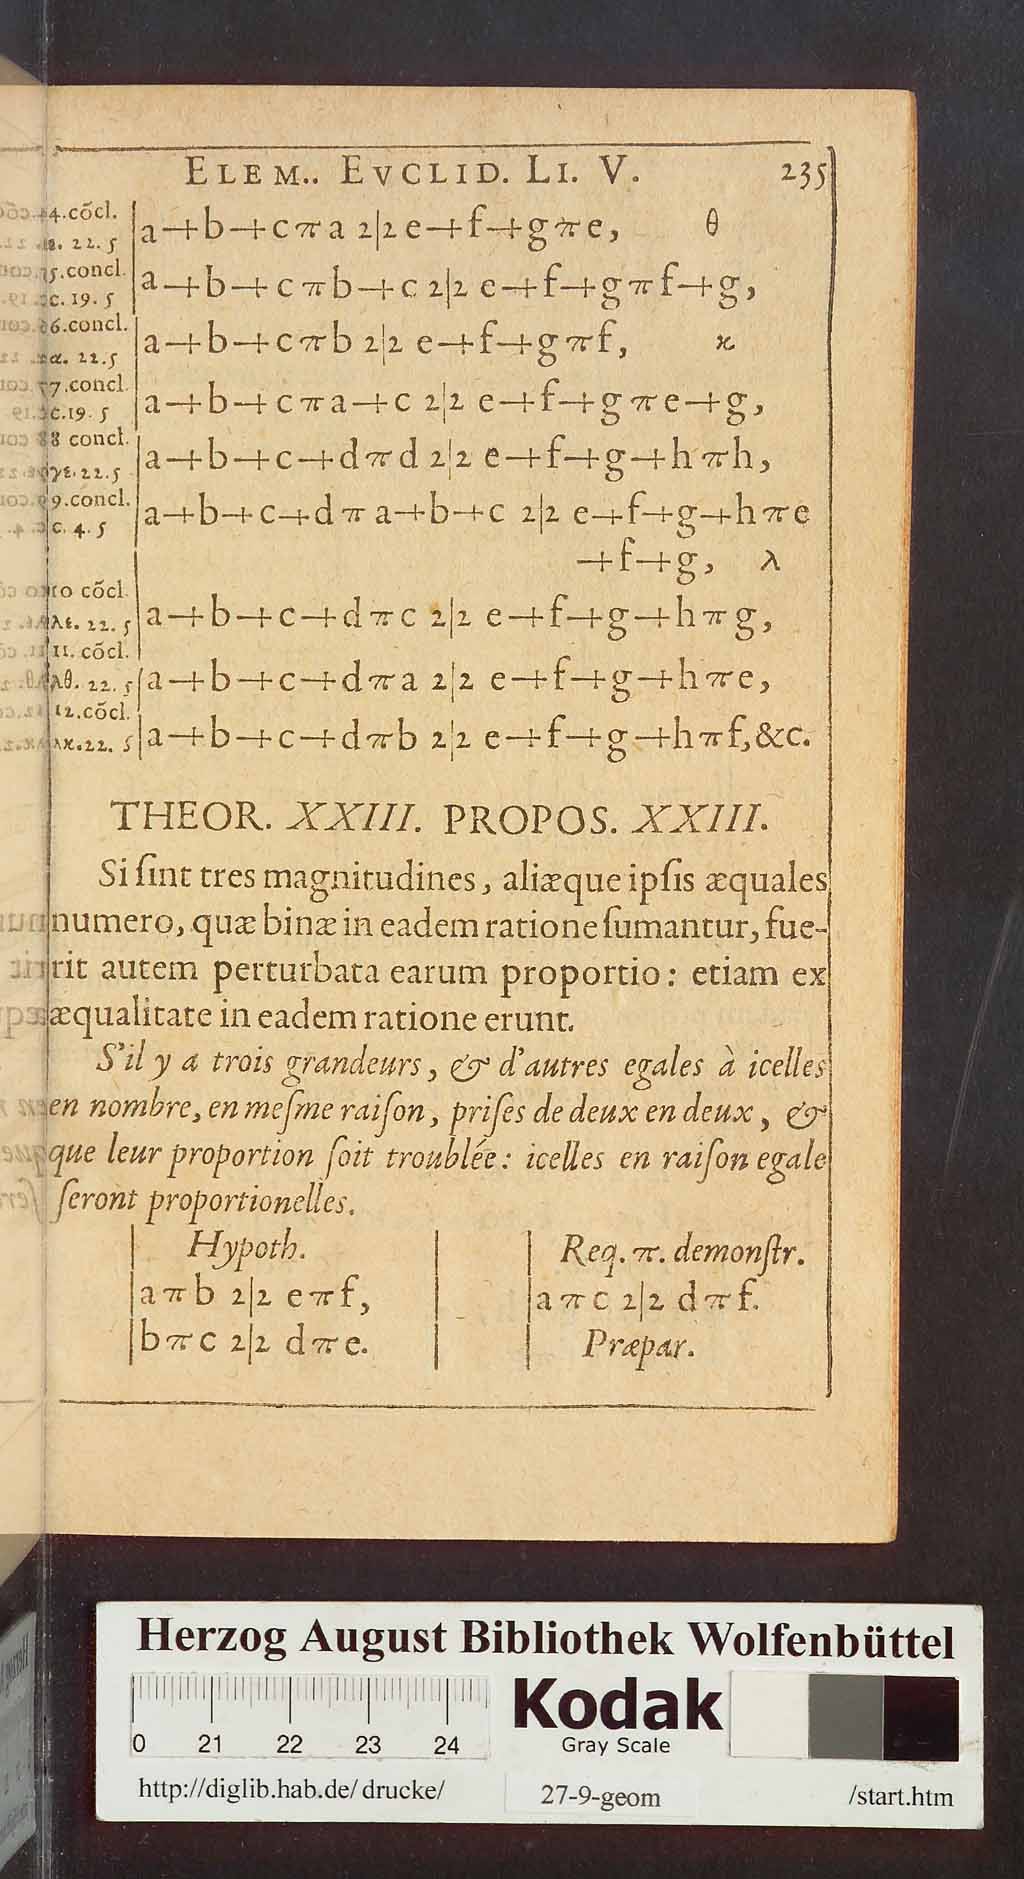 ELEM.. EVCLID. LI. V. 235
4.cõcl. a+b+cπa 2|2 e+f+gπe, θ
22. 5
5.concl. a+b+cπb+c 2|2 e+f+gπf+g,
c. 19. 5
6.concl. a+b+cπb 2|2 e+f+gπf, ϰ
α. 22.5
7.concl. a+b+cπa+c 2|2 e+f+gπe+g,
c.19. 5
8 concl. a+b+c+dπd 2|2 e+f+g+hπh,
γε.22.5
9.concl. a+b+c+dπa+b+c 2|2 e+f+g+hπe
c. 4. 5
+f+g, λ
10 cõcl.
λε. 22. 5 a+b+c+dπc 2|2 e+f+g+hπg,
11. cõcl.
λθ. 22. 5 a+b+c+dπa 2|2 e+f+g+hπe,
12.cõcl.
λϰ.22. 5 a+b+c+dπb 2|2 e+f+g+hπf,&c.
THEOR. XXIII. PROPOS. XXIII.
Si ſint tres magnitudines, aliæque ipſis æquales
numero, quæ binæ in eadem ratione ſumantur, fue-
rit autem perturbata earum proportio: etiam ex
æqualitate in eadem ratione erunt.
S'il y a trois grandeurs, & d'autres egales à icelles
en nombre, en meſme raiſon, priſes de deux en deux, &
que leur proportion ſoit troublée: icelles en raiſon egale
ſeront proportionelles.
Hypoth. Req. π. demonſtr.
aπb 2|2 eπf, aπc 2|2 dπf.
bπc 2|2 dπe. Præpar.
Herzog August Bibliothek Wolfenbüttel
Kodak
0 21 22 23 24 Gray Scale
http://diglib.hab.de/drucke/ 27-9-geom /start.htm